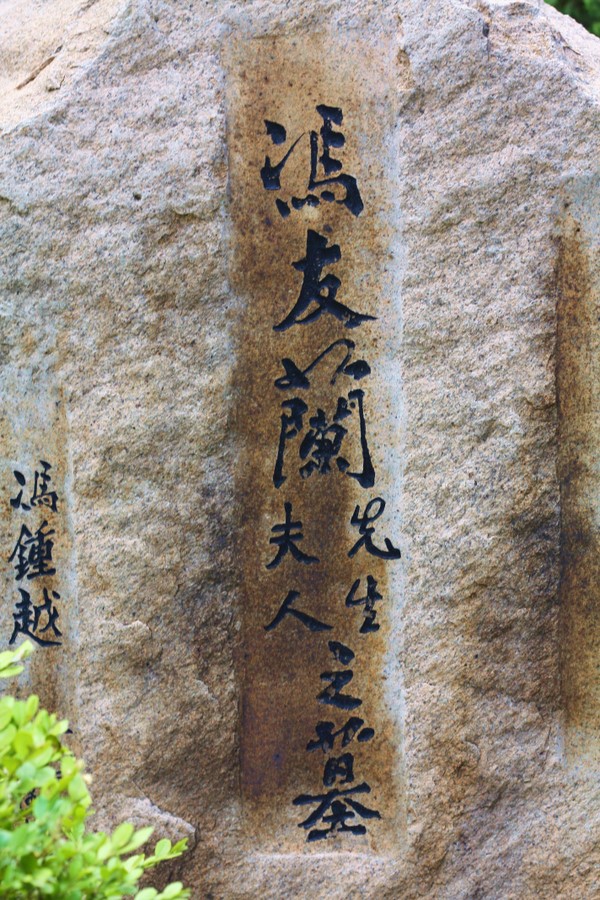 馮友蘭先生夫人之墓
馮鍾越